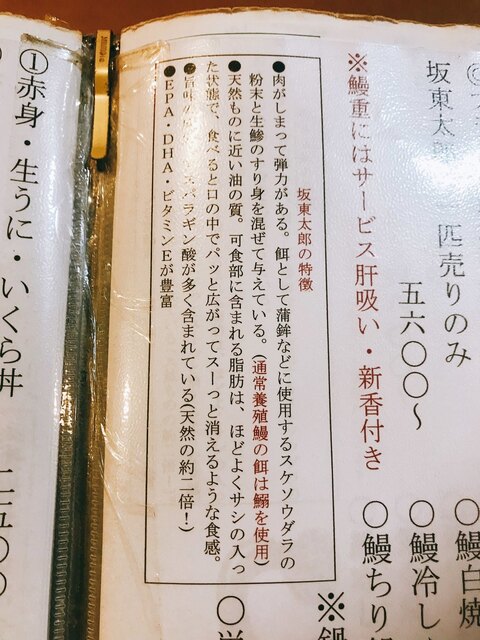 坂東太郎
匹売りのみ
五六〇〇～
※鰻重にはサービス肝吸い・新香付き
〇鰻白焼
〇鰻冷し
〇鰻ちり
坂東太郎の特徴
●肉がしまって弾力がある。餌として蒲鉾などに使用するスケソウダラの
粉末と生鯵のすり身を混ぜて与えている。(通常養殖鰻の餌は鰯を使用)
●天然ものに近い油の質。可食部に含まれる脂肪は、ほどよくサシの入っ
た状態で、食べると口の中でパッと広がってスーっと消えるような食感。
●旨味 スパラギン酸が多く含まれている(天然の約二倍!)
●EPA・DHA・ビタミンEが豊富
①赤身・生うに・いくら丼